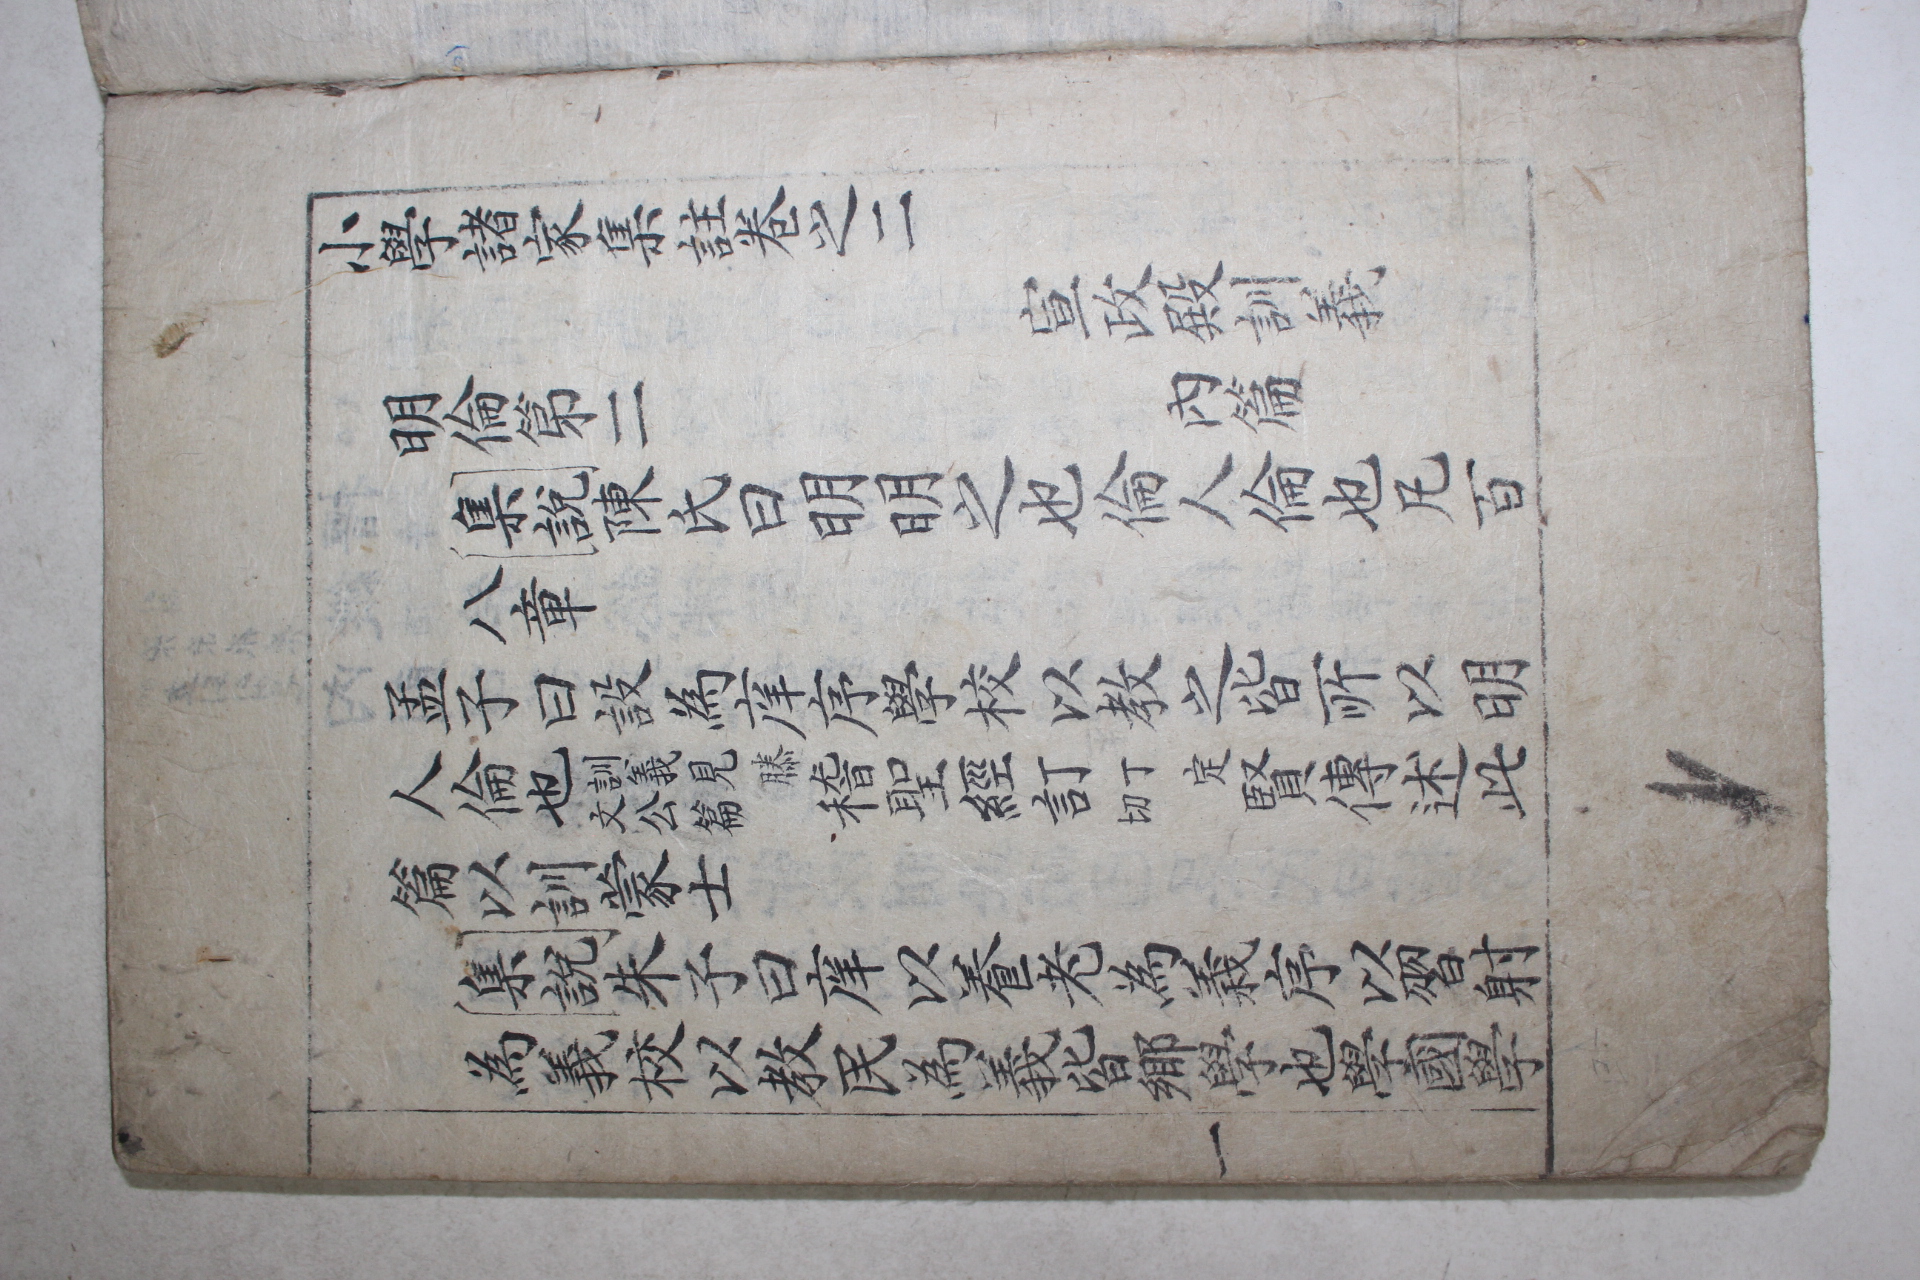 小學諸家集註卷之二
宣政殿訓義
內篇
明倫第二
集說陳氏曰明明之也倫人倫也凡百
八章
孟子曰設為庠序學校以教之皆所以明
人倫也訓義見滕文公篇稽聖經訂丁定切賢傳述此
篇以訓蒙士
集說朱子曰庠以養老為義序以習射
為義校以教民為義皆鄉學也學國學
一